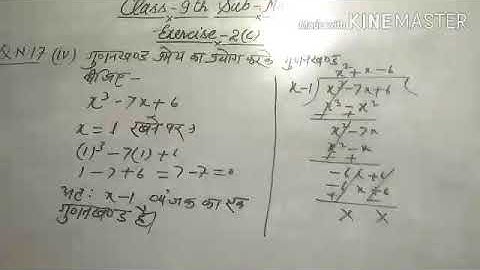 Class-9th Sub-M
Made with KINEMASTER
Exercise-2(C)
Q.N.17 (iv) गुणनखण्ड प्रमेय का प्रयोग करके गुणनखण्ड
कीजिए -
x³-7x+6
x = 1 रखने पर
(1)³-7(1)+6
1-7+6 = 7-7=0
अतः x-1 व्यंजक का एक
गुणनखण्ड है।
x²+x-6
x-1) x³-7x+6 (
x³-x²
- +
x²-7x
x²-x
- +
-6x+6
-6x+6
+ -
x x